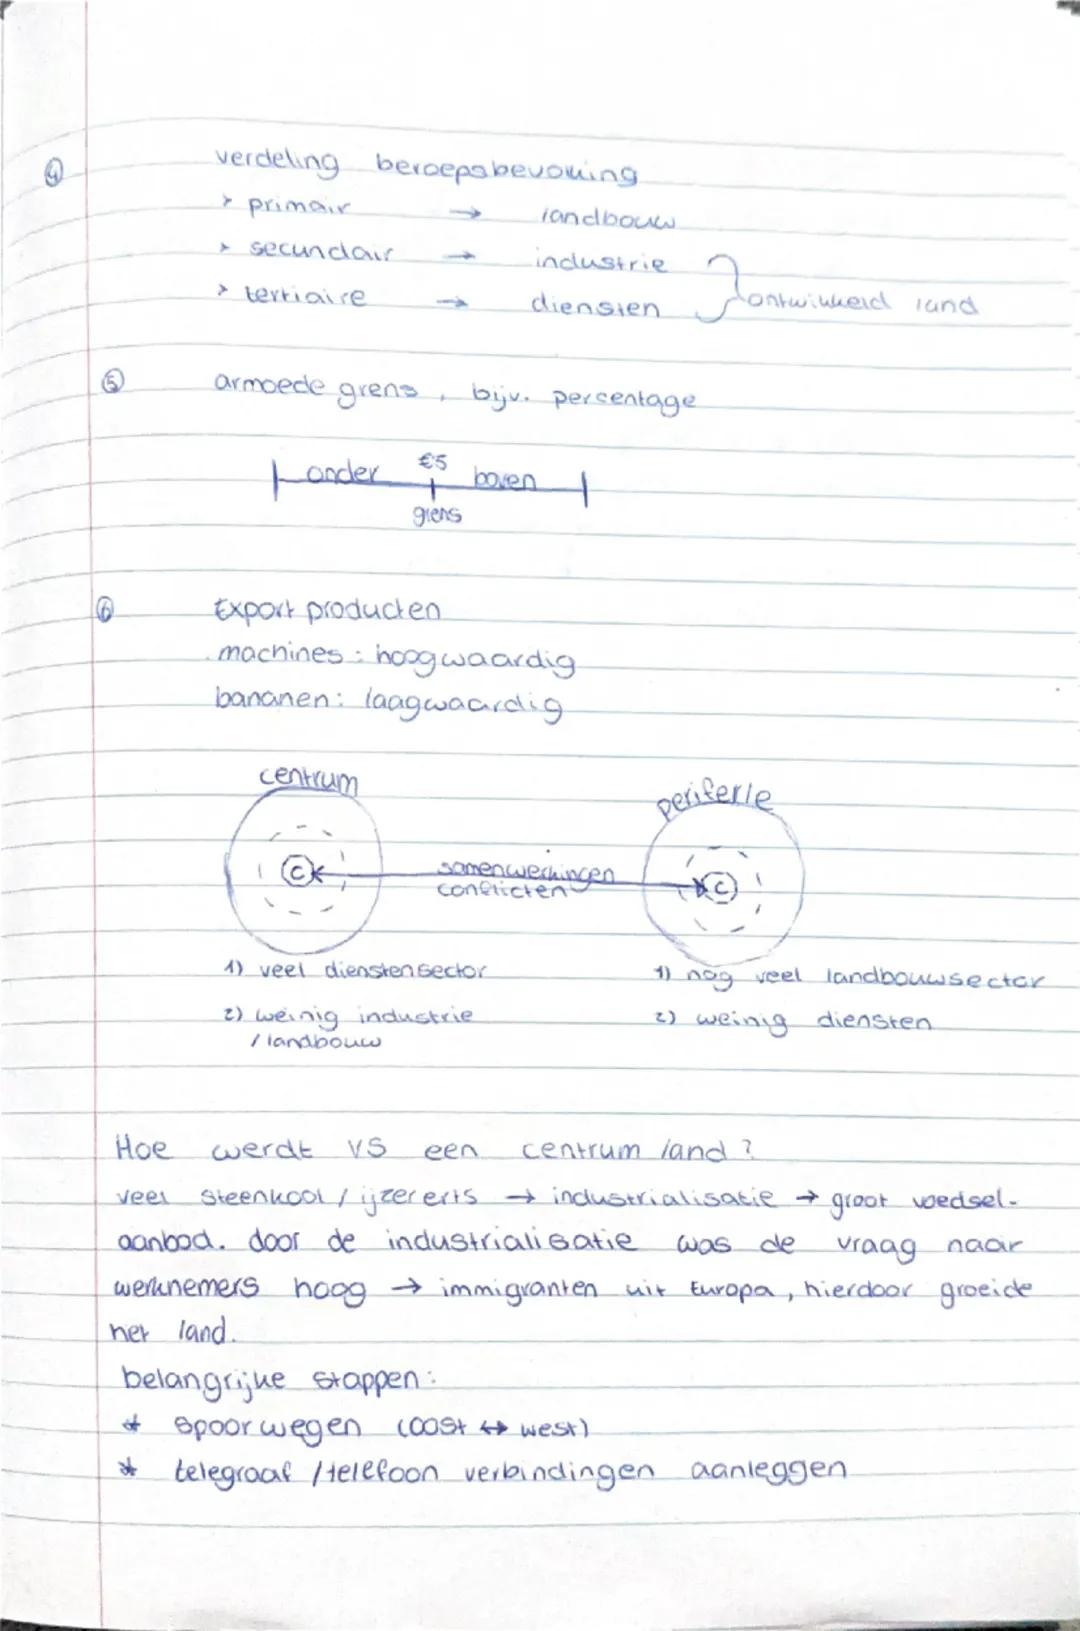 ④ verdeling beroepsbevolking
> primair → landbouw
> secundair → industrie
> tertiaire → diensten } ontwikkeld land
⑤ armoede grens, bijv. percentage
onder €5 boven
grens
⑥ Export producten
machines: hoogwaardig
bananen: laagwaardig
centrum periferie
C samenwerkingen C
conflicten
1) veel dienstensector 1) nog veel landbouwsector
2) weinig industrie 2) weinig diensten
/ landbouw
Hoe werdt VS een centrum land?
veel steenkool / ijzererts → industrialisatie → groot voedsel-
aanbod. door de industrialisatie was de vraag naar
werknemers hoog → immigranten uit Europa, hierdoor groeide
het land.
belangrijke stappen:
* spoorwegen (oost ↔ west)
* telegraaf / telefoon verbindingen aanleggen